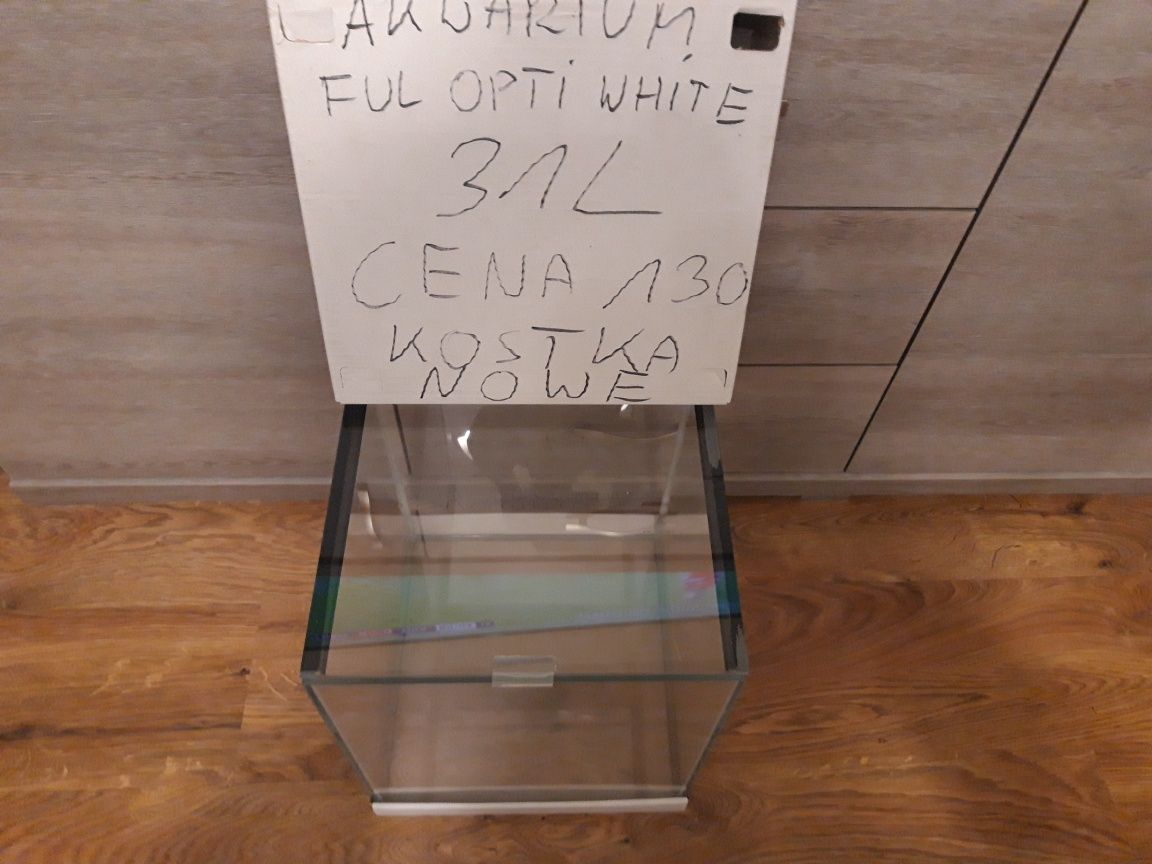 AKWARIUM
FUL OPTI WHITE
31L
CENA 130
KOSTKA
NOWE